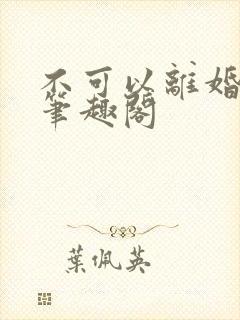 不可以離婚
筆趣閣
葉佩英